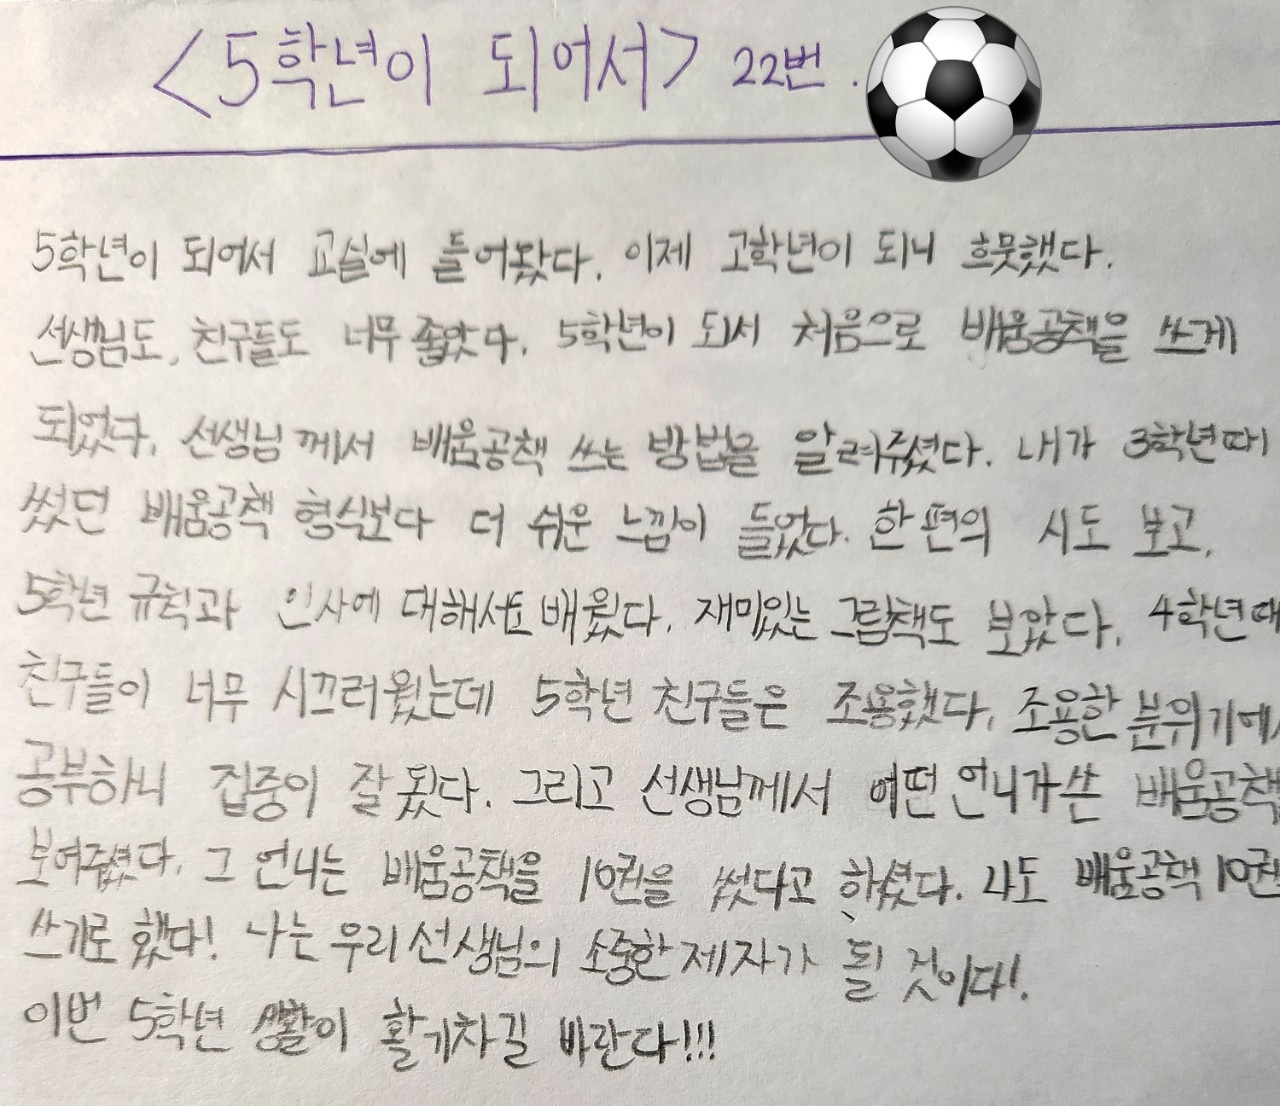 <5학년이 되어서> 22번.
5학년이 되어서 교실에 들어왔다. 이제 고학년이 되니 흐뭇했다.
선생님도, 친구들도 너무 좋았다. 5학년이 되서 처음으로 배움공책을 쓰게
되었다. 선생님께서 배움공책 쓰는 방법을 알려주셨다. 내가 3학년때
썼던 배움공책 형식보다 더 쉬운 느낌이 들었다. 한 편의 시도 보고,
5학년 규칙과 인사에 대해서도 배웠다. 재미있는 그림책도 보았다. 4학년때
친구들이 너무 시끄러웠는데 5학년 친구들은 조용했다. 조용한 분위기에
공부하니 집중이 잘 됬다. 그리고 선생님께서 어떤 언니가 쓴 배움공책
보여주셨다. 그 언니는 배움공책을 10권을 썼다고 하셨다. 나도 배움공책 10권
쓰기로 했다! 나는 우리 선생님의 소중한 제자가 될 것이다!.
이번 5학년 생활이 활기차길 바란다!!!